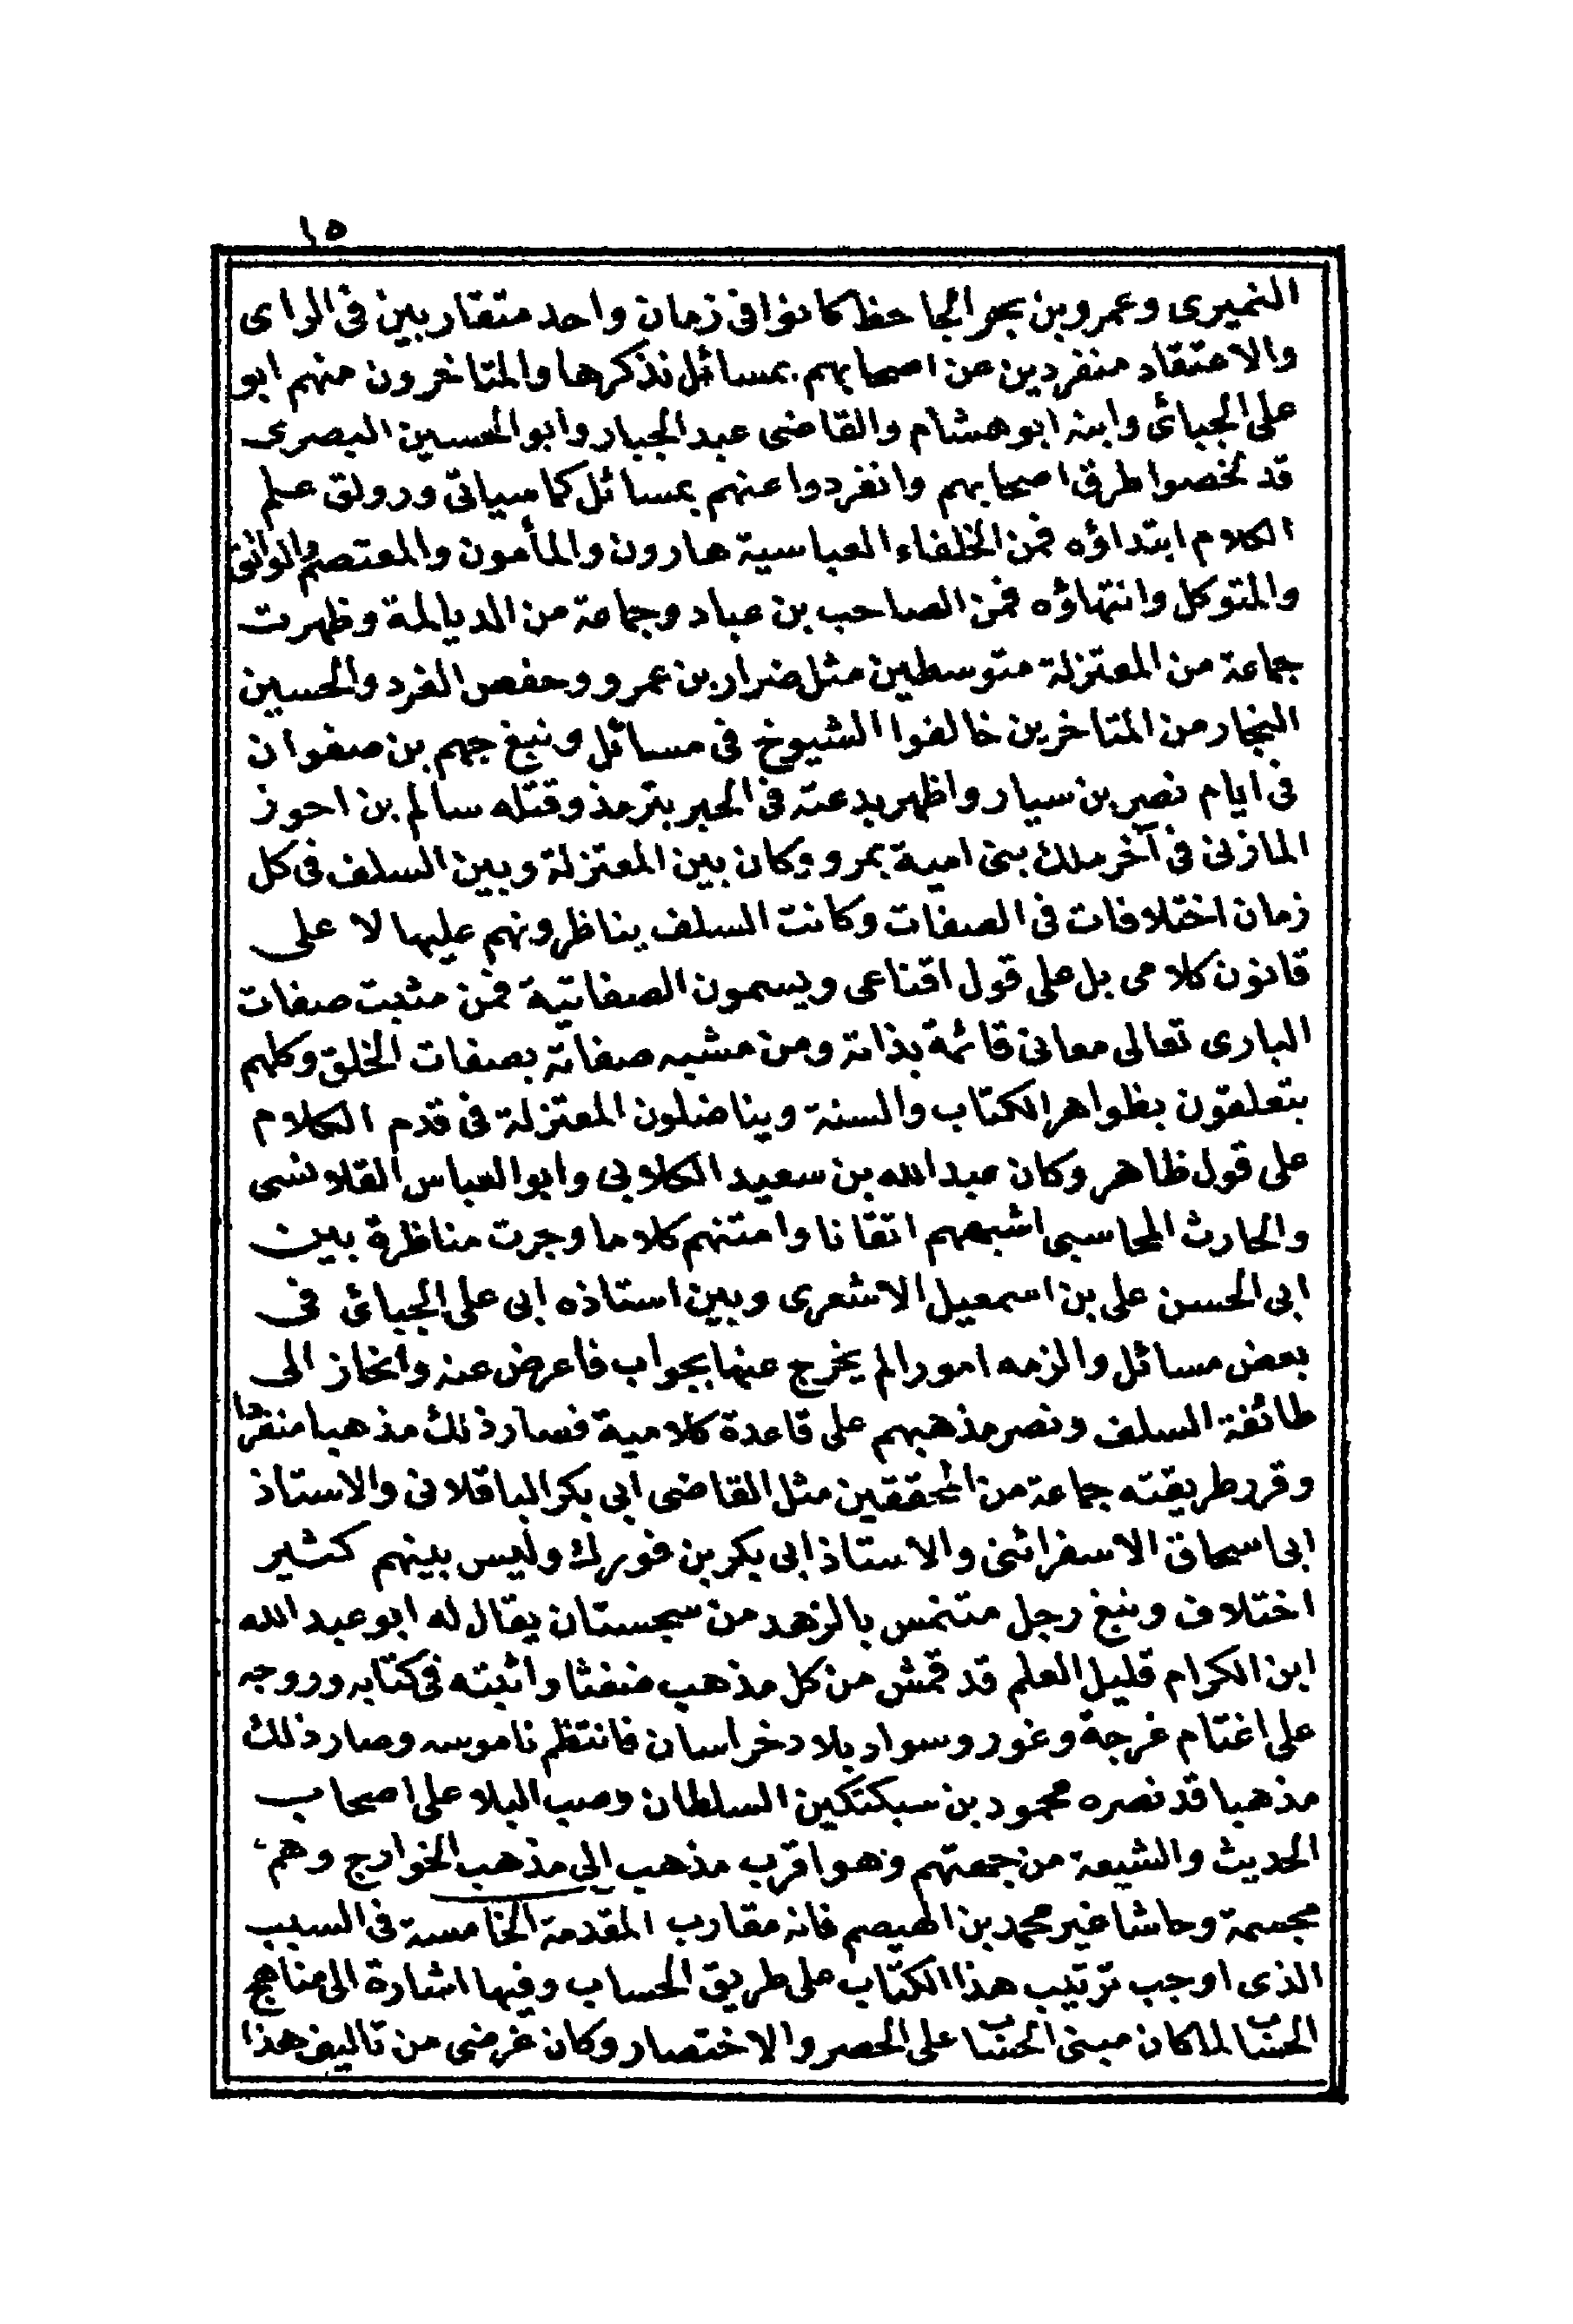 ١٥
النميرى وعمرو بن بحر الجاحظ كانوا فى زمان واحد متقاربين فى الراى
والاعتقاد منفردين عن اصحابهم بمسائل نذكرها والمتاخرون منهم ابو
على الجبائى وابنه ابو هشام والقاضى عبد الجبار وابو الحسين البصرى
قد لخصوا طرق اصحابهم وانفردوا عنهم بمسائل كما سياتى ورونق علم
الكلام ابتداؤه فمن الخلفاء العباسية هارون والمأمون والمعتصم والواثق
والمتوكل وانتهاؤه فمن الصاحب بن عباد وجماعة من الديالمة وظهرت
جماعة من المعتزلة متوسطين مثل ضرار بن عمرو وحفص الفرد والحسين
النجار من المتاخرين خالفوا الشيوخ فى مسائل ونبغ جهم بن صفوان
فى ايام نصر بن سيار واظهر بدعته فى الجبر بترمذ وقتله سالم بن احوز
المازنى فى آخر ملك بنى امية بمرو وكان بين المعتزلة وبين السلف فى كل
زمان اختلافات فى الصفات وكانت السلف يناظرونهم عليها لا على
قانون كلامى بل على قول اقناعى ويسمون الصفاتية فمن مثبت صفات
البارى تعالى معانى قائمة بذاته ومن مشبه صفاته بصفات الخلق وكلهم
بتعلقون بظواهر الكتاب والسنة ويناضلون المعتزلة فى قدم الكلام
على قول ظاهر وكان عبد الله بن سعيد الكلابى وابو العباس القلانسى
والحارث المحاسبى اشبههم اتقانا وامتنهم كلاما وجرت مناظرة بين
ابى الحسن على بن اسمعيل الاشعرى وبين استاذه ابى على الجبائى فى
بعض مسائل والزمه امورا لم يخرج عنها بجواب فاعرض عنه وانحاز الى
طائفة السلف ونصر مذهبهم على قاعدة كلامية فصار ذلك مذهبا منفردا
وقرر طريقته جماعة من المحققين مثل القاضى ابى بكر الباقلانى والاستاذ
ابى اسحاق الاسفرائنى والاستاذ ابى بكر بن فورك وليس بينهم كثير
اختلاف ونبغ رجل متنمس بالزهد من سجستان يقال له ابو عبد الله
ابن الكرام قليل العلم قد قمش من كل مذهب ضغثا واثبته فى كتابه وروجه
على اغتام غرجة وغور وسواد بلاد خراسان فانتظم ناموسه وصار ذلك
مذهبا قد نصره محمود بن سبكتكين السلطان وصب البلا على اصحاب
الحديث والشيعة من جهتهم وهو اقرب مذهب الى مذهب الخوارج وهم
مجسمة وحاشا غير محمد بن الهيصم فانه مقارب المقدمة الخامسة فى السبب
الذى اوجب ترتيب هذا الكتاب على طريق الحساب وفيها اشارة الى مناهج
الحساب لما كان مبنى الحساب على الحصر والاختصار وكان غرضى من تاليف هذا